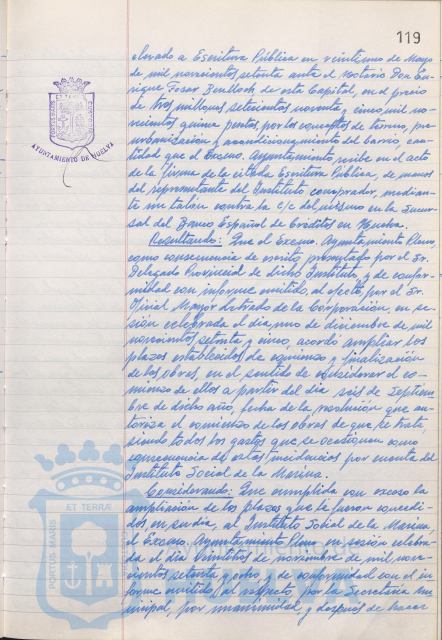 119
PORTUS MARIS ET TERRÆ CUSTODIA
AYUNTAMIENTO DE HUELVA
elevado a Escritura Pública en veintiuno de Mayo
de mil novecientos setenta ante el Notario Don En-
rique Fosar Benlloch de esta Capital, en el precio
de tres millones setecientos noventa y cinco mil no-
vecientos quince pesetas, por los conceptos de terreno, pre
urbanización y acondicionamiento del barrio, can-
tidad que el Excmo. Ayuntamiento recibe en el acto
de la firma de la citada Escritura Pública, de manos
del representante del Instituto comprador, median-
te un talón contra la c/c del mismo en la Sucur-
sal del Banco Español de Crédito en Huelva.
Resultando: Que el Excmo. Ayuntamiento Pleno,
como consecuencia de escrito presentado por el Sr.
Delegado Provincial de dicho Instituto, y de confor-
midad con informe emitido, al efecto, por el Sr.
Oficial Mayor Letrado de la Corporación, en se-
sión celebrada el día uno de diciembre de mil
novecientos setenta y cinco, acordó ampliar los
plazos establecidos de comienzo y finalización
de las obras, en el sentido de considerar el co-
mienzo de ellas a partir del día seis de Septiem-
bre de dicho año, fecha de la resolución que au-
toriza el comienzo de las obras de que se trata,
siendo todos los gastos que se ocasionen como
consecuencia de estas incidencias por cuenta del
Instituto Social de la Marina.
Considerando: Que cumplida con exceso la
ampliación de los plazos que le fueron concedi-
dos en su día, al Instituto Social de la Marina,
el Excmo. Ayuntamiento Pleno en sesión celebra-
da el día veintitres de noviembre de mil nove-
cientos setenta y ocho, y de conformidad con el in-
forme emitido, al respecto, por la Secretaría Mu-
nicipal, por unanimidad, y después de hacer
PORTUS MARIS ET TERRÆ